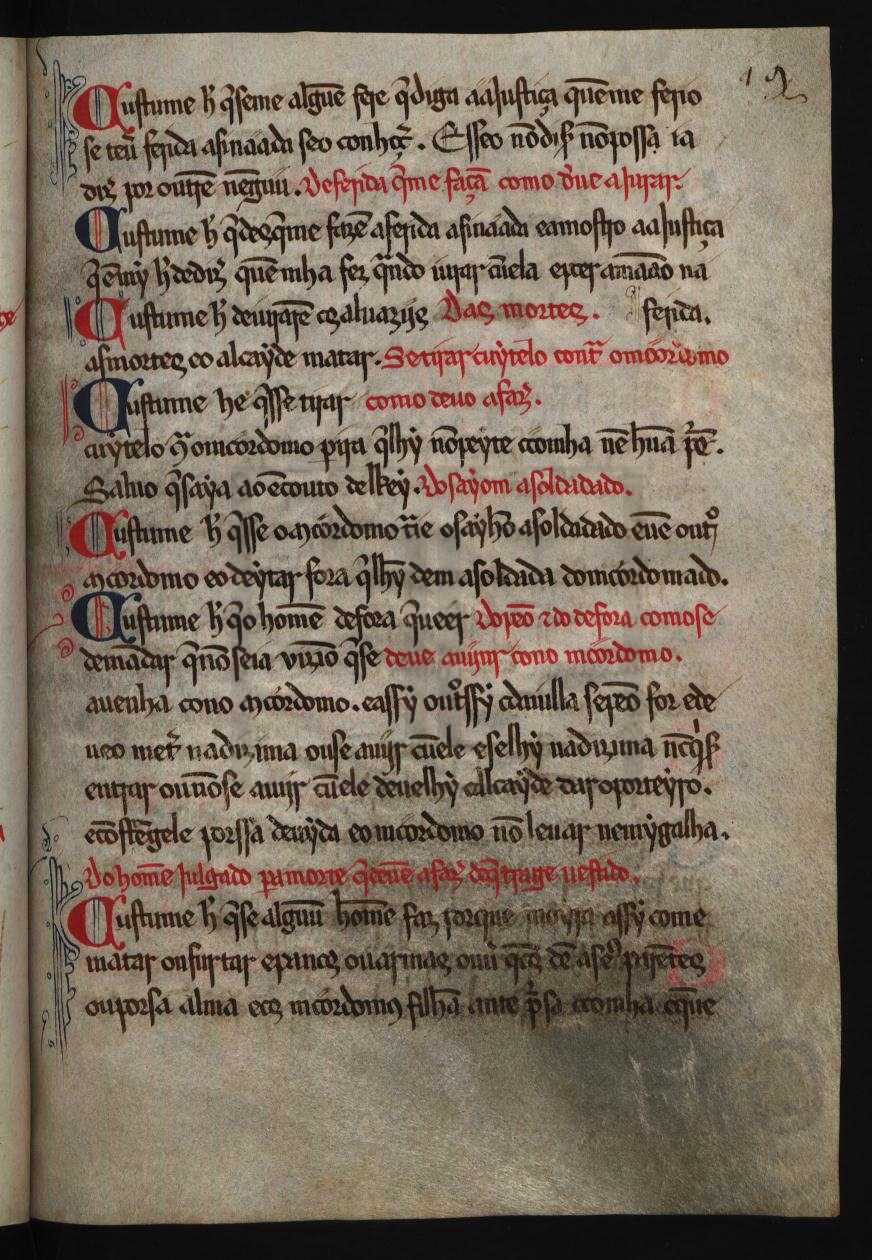 Custume h̃ q̃ se me alguẽ fere q̃ diga aa Justiça quẽ me ferio
se teũ ferida asinaada se o conhoç̃. E sse o nõ diſ̃ nõ possa ia
diz̃ por outrẽ nẽguũ. De ferida q̃ me façã como d̃ue a Jurar.
Custume h̃ q̃ des q̃ me fazẽ a ferida asinaada e a mostro aa Justiça
q̃ ẽ my h̃ de diz̃ quẽ mha fez quãdo iurar cũ ela
Custume h̃ de uirarẽ cõs aluazijs Das mortes. ferida.
as mortes e o alcayde matar. Se tirar cuytelo cont̃ o mõordomo
Custume he q̃ sse tirar como deuo a faz̃.
cuytelo q̃ o mõordomo pera q̃ lhy nõ peyte cõomha nẽ hũa
Saluo q̃ saya ao ẽcouto del Rey. Do sayom asoldadado.
Custume h̃ q̃ sse o mõordomo t̃ie o sayhõ asoldadado e uẽ out̃o
mõordomo e o deytar fora q̃ lhy dem a soldada do mõordomado.
Custume h̃ q̃ o homẽ de fora q̃ ueer Do peõ ⁊ do de fora como se
demãdar q̃ nõ seia uizĩo q̃ se deue auijr cono mõordomo.
auenha cono mõordomo. e assy out̃ssy cõ da uilla se peõ for e de
entrar ou nõ se auijr cũ ele deuelhy o alcayde dar o porteyro.
e cõstrẽgele por ssa deuyda e o mõordomo nõ leuar nemygalha.
Do homẽ Julgado pa morte q̃ deuẽ a faz̃ do q̃ trage uestido.
Custume h̃ q̃ se alguũ homẽ faz porque moyra assy come
matar ou furtar e panos ou armas
ou por sa alma e os mõordomos filhã ante